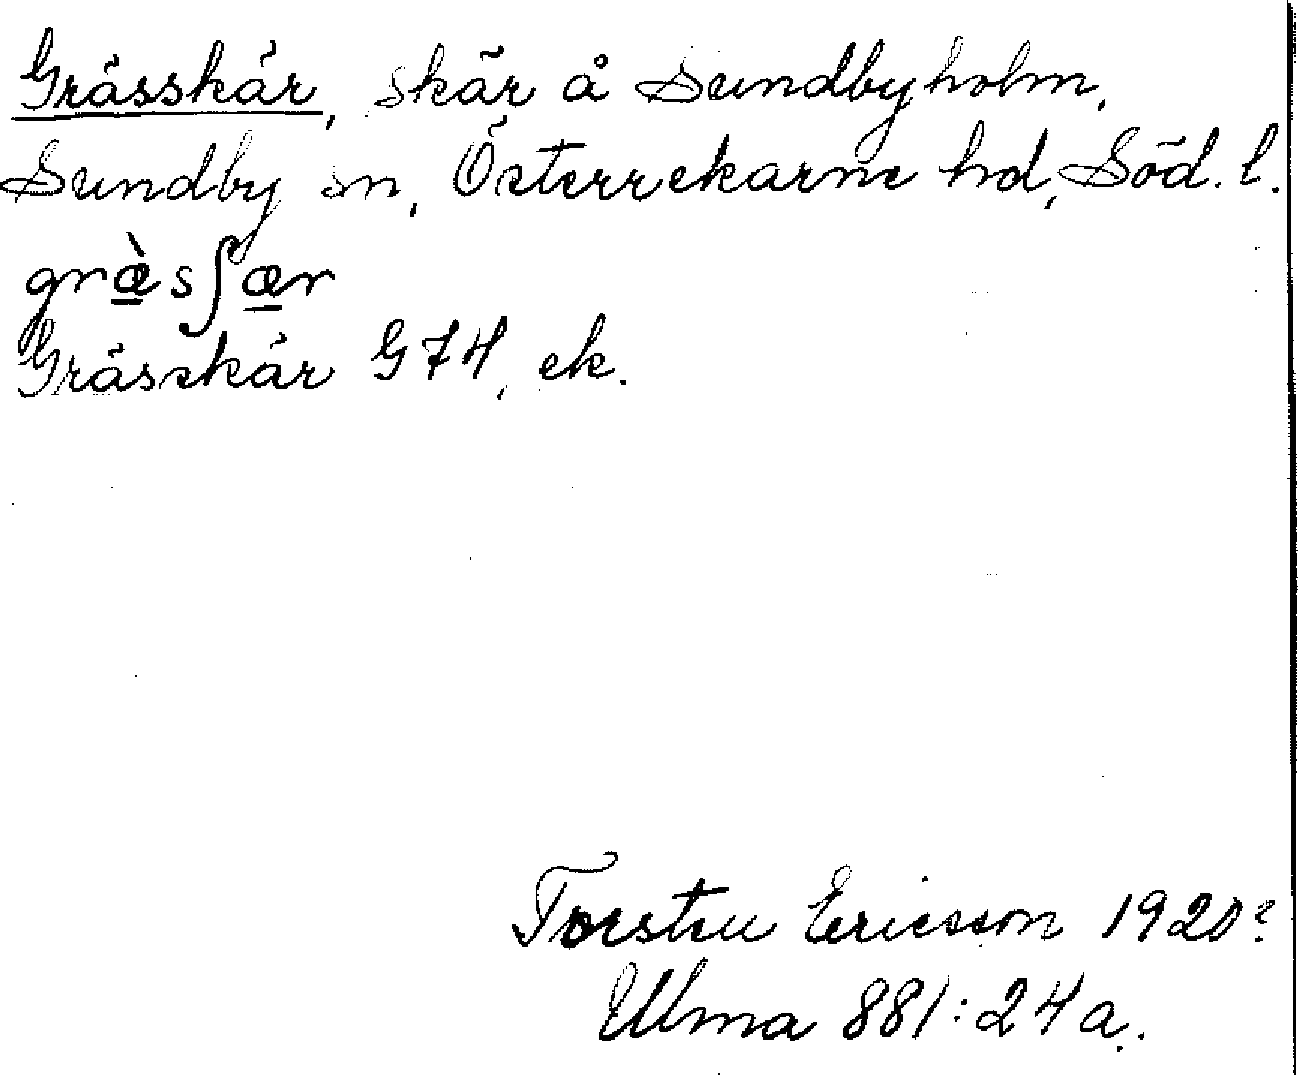 Grässkär, skär å Sundbyholm,
Sundby sn, Österrekarne hd, Söd. l.
græ̀sʃær
Grässkär G 74, ek.
Torsten Ericsson 1920?
Ulma 881:24a.